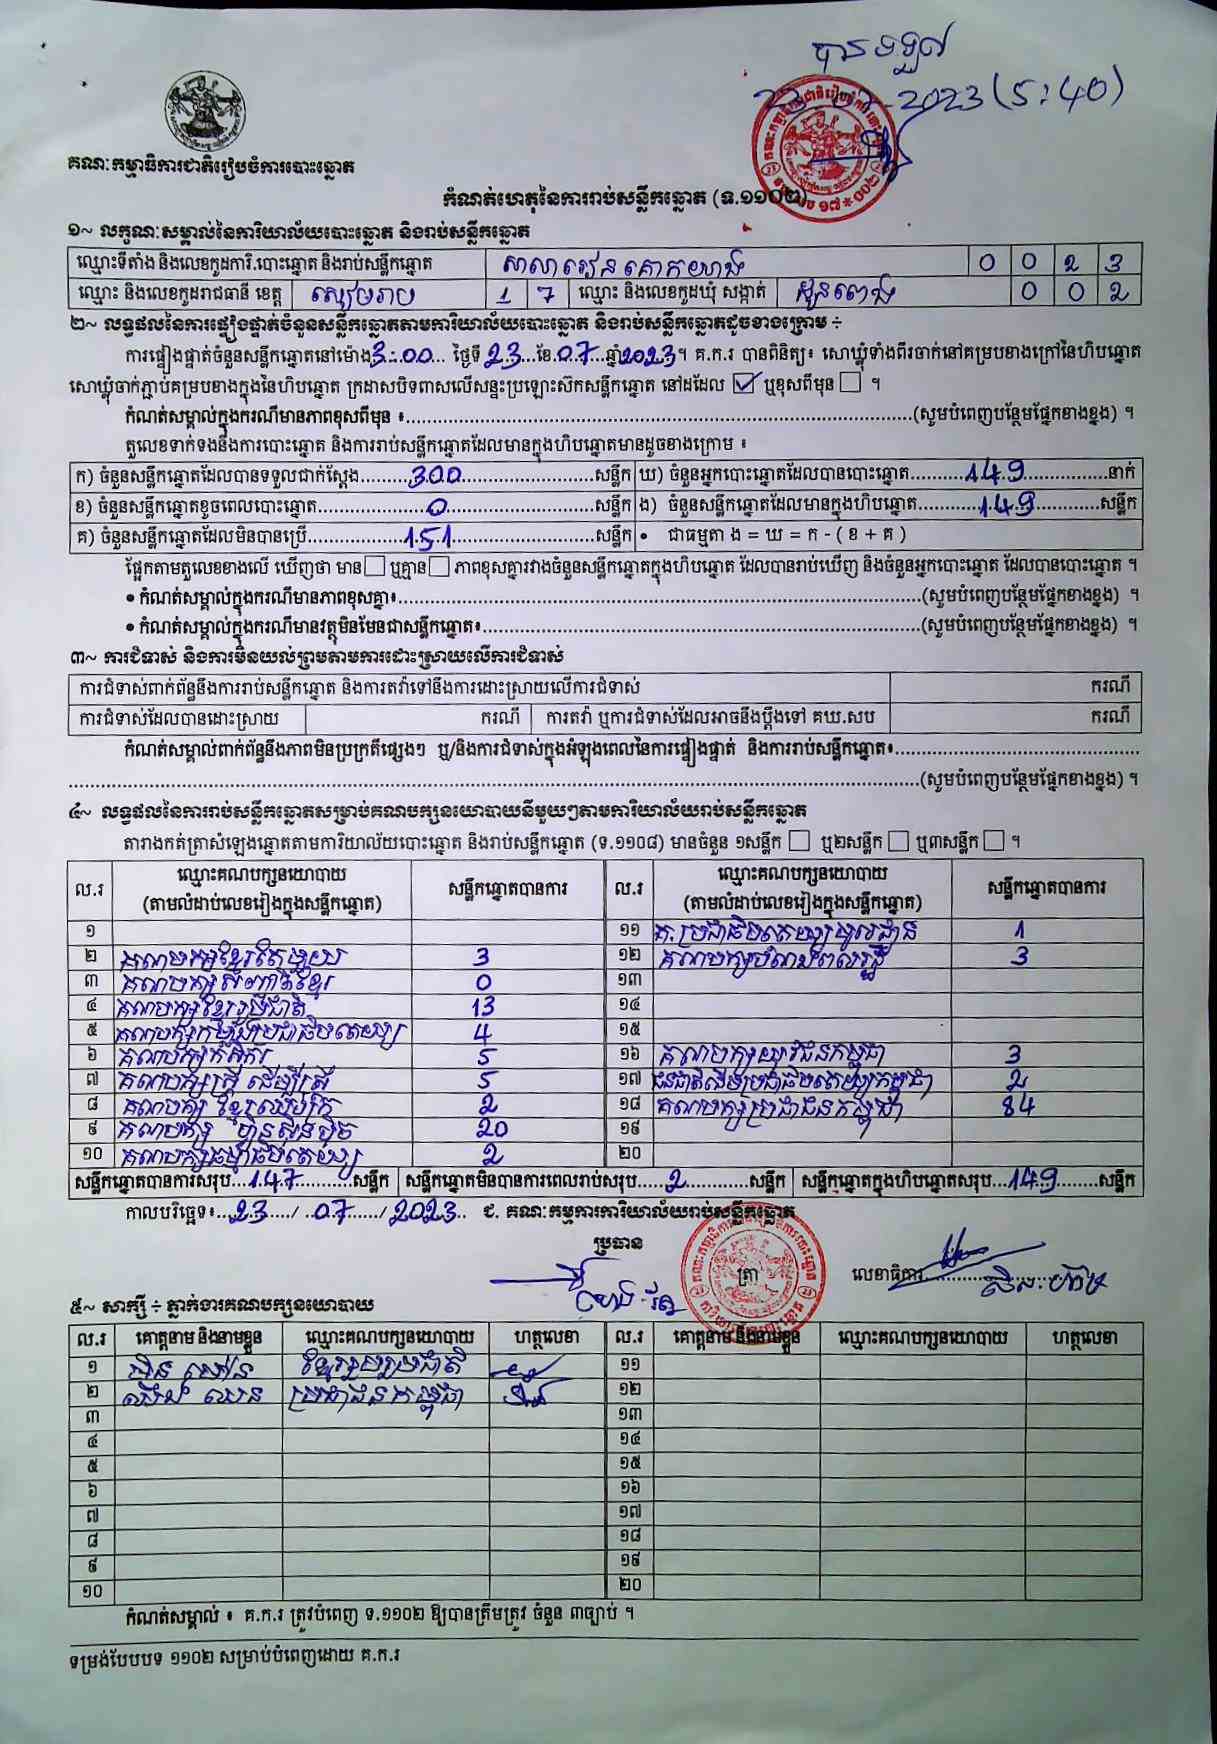 បានទទួល
2023 (5:40)
គណៈកម្មាធិការជាតិរៀបចំការបោះឆ្នោត
កំណត់ហេតុនៃការរាប់សន្លឹកឆ្នោត (ទ.១១០២)
១~ លក្ខណៈសម្គាល់នៃការិយាល័យបោះឆ្នោត និងរាប់សន្លឹកឆ្នោត
ឈ្មោះទីតាំង និងលេខកូដការិ.បោះឆ្នោត និងរាប់សន្លឹកឆ្នោត សាលារៀនគោកយាង 0 0 2 3
ឈ្មោះ និងលេខកូដរាជធានី ខេត្ត សៀមរាប 1 7 ឈ្មោះ និងលេខកូដឃុំ សង្កាត់ ដូនពេង 0 0 2
២~ លទ្ធផលនៃការផ្ទៀងផ្ទាត់ចំនួនសន្លឹកឆ្នោតតាមការិយាល័យបោះឆ្នោត និងរាប់សន្លឹកឆ្នោតដូចខាងក្រោម ÷
ការផ្ទៀងផ្ទាត់ចំនួនសន្លឹកឆ្នោតនៅម៉ោង 3:00 ថ្ងៃទី 23 ខែ 07 ឆ្នាំ 2023 ។ គ.ក.រ បានពិនិត្យ៖ សោឃ្លុំទាំងពីរចាក់នៅគម្របខាងក្រៅនៃហិបឆ្នោត
សោឃ្លុំចាក់ភ្ជាប់គម្របខាងក្នុងនៃហិបឆ្នោត ក្រដាសបិទពាសលើសន្ទះប្រឡោះស៊កសន្លឹកឆ្នោត នៅដដែល ☑ ឬខុសពីមុន ☐ ។
កំណត់សម្គាល់ក្នុងករណីមានភាពខុសពីមុន ៖ (សូមបំពេញបន្ថែមផ្នែកខាងខ្នង) ។
តួលេខទាក់ទងនឹងការបោះឆ្នោត និងការរាប់សន្លឹកឆ្នោតដែលមានក្នុងហិបឆ្នោតមានដូចខាងក្រោម ៖
ក) ចំនួនសន្លឹកឆ្នោតដែលបានទទួលជាក់ស្ដែង 300 សន្លឹក ឃ) ចំនួនអ្នកបោះឆ្នោតដែលបានបោះឆ្នោត 149 នាក់
ខ) ចំនួនសន្លឹកឆ្នោតខូចពេលបោះឆ្នោត 0 សន្លឹក ង) ចំនួនសន្លឹកឆ្នោតដែលមានក្នុងហិបឆ្នោត 149 សន្លឹក
គ) ចំនួនសន្លឹកឆ្នោតដែលមិនបានប្រើ 151 សន្លឹក • ជាធម្មតា ង = ឃ = ក - ( ខ + គ )
ផ្អែកតាមតួលេខខាងលើ ឃើញថា មាន ☐ ឬគ្មាន ☐ ភាពខុសគ្នារវាងចំនួនសន្លឹកឆ្នោតក្នុងហិបឆ្នោត ដែលបានរាប់ឃើញ និងចំនួនអ្នកបោះឆ្នោត ដែលបានបោះឆ្នោត ។
• កំណត់សម្គាល់ក្នុងករណីមានភាពខុសគ្នា៖ (សូមបំពេញបន្ថែមផ្នែកខាងខ្នង) ។
• កំណត់សម្គាល់ក្នុងករណីមានវត្ថុមិនមែនជាសន្លឹកឆ្នោត៖ (សូមបំពេញបន្ថែមផ្នែកខាងខ្នង) ។
៣~ ការជំទាស់ និងការមិនយល់ព្រមតាមការដោះស្រាយលើការជំទាស់
ការជំទាស់ពាក់ព័ន្ធនឹងការរាប់សន្លឹកឆ្នោត និងការតវ៉ាទៅនឹងការដោះស្រាយលើការជំទាស់ ករណី
ការជំទាស់ដែលបានដោះស្រាយ ករណី ការតវ៉ា ឬការជំទាស់ដែលអាចនឹងប្ដឹងទៅ គឃ.សប ករណី
កំណត់សម្គាល់ពាក់ព័ន្ធនឹងភាពមិនប្រក្រតីផ្សេងៗ ឬ/និងការជំទាស់ក្នុងអំឡុងពេលនៃការផ្ទៀងផ្ទាត់ និងការរាប់សន្លឹកឆ្នោត៖
(សូមបំពេញបន្ថែមផ្នែកខាងខ្នង) ។
៤~ លទ្ធផលនៃការរាប់សន្លឹកឆ្នោតសម្រាប់គណបក្សនយោបាយនីមួយៗតាមការិយាល័យរាប់សន្លឹកឆ្នោត
តារាងកត់ត្រាសំឡេងឆ្នោតតាមការិយាល័យបោះឆ្នោត និងរាប់សន្លឹកឆ្នោត (ទ.១១០៨) មានចំនួន ១សន្លឹក ☐ ឬ២សន្លឹក ☐ ឬ៣សន្លឹក ☐ ។
ល.រ ឈ្មោះគណបក្សនយោបាយ (តាមលំដាប់លេខរៀងក្នុងសន្លឹកឆ្នោត) សន្លឹកឆ្នោតបានការ ល.រ ឈ្មោះគណបក្សនយោបាយ (តាមលំដាប់លេខរៀងក្នុងសន្លឹកឆ្នោត) សន្លឹកឆ្នោតបានការ
១ ១១ គ.ប្រជាធិបតេយ្យមូលដ្ឋាន 1
២ គណបក្សខ្មែរតែមួយ 3 ១២ គណបក្សបំណងពលរដ្ឋ 3
៣ គណបក្សសញ្ជាតិខ្មែរ 0 ១៣
៤ គណបក្សខ្មែររួបរួមជាតិ 13 ១៤
៥ គណបក្សកម្លាំងប្រជាធិបតេយ្យ 4 ១៥
៦ គណបក្សកសិករ 5 ១៦ គណបក្សយុវជនកម្ពុជា 3
៧ គណបក្សស្ត្រីដើម្បីស្ត្រី 5 ១៧ ជនជាតិដើមប្រជាធិបតេយ្យកម្ពុជា 2
៨ គណបក្ស ខ្មែរឈប់ក្រ 2 ១៨ គណបក្សប្រជាជនកម្ពុជា 84
៩ គណបក្ស ហ្វ៊ុនស៊ិនប៉ិច 20 ១៩
១០ គណបក្សធម្មាធិបតេយ្យ 2 ២០
សន្លឹកឆ្នោតបានការសរុប 147 សន្លឹក សន្លឹកឆ្នោតមិនបានការពេលរាប់សរុប 2 សន្លឹក សន្លឹកឆ្នោតក្នុងហិបឆ្នោតសរុប 149 សន្លឹក
កាលបរិច្ឆេទ៖ 23 / 07 / 2023 ជ. គណៈកម្មការការិយាល័យរាប់សន្លឹកឆ្នោត
ប្រធាន
ត្រា លេខាធិការ
៥~ សាក្សី ÷ ភ្នាក់ងារគណបក្សនយោបាយ
ល.រ គោត្តនាម និងនាមខ្លួន ឈ្មោះគណបក្សនយោបាយ ហត្ថលេខា ល.រ គោត្តនាម និងនាមខ្លួន ឈ្មោះគណបក្សនយោបាយ ហត្ថលេខា
១ ខ្មែររួបរួមជាតិ ១១
២ ប្រជាជនកម្ពុជា ១២
៣ ១៣
៤ ១៤
៥ ១៥
៦ ១៦
៧ ១៧
៨ ១៨
៩ ១៩
១០ ២០
កំណត់សម្គាល់ ៖ គ.ក.រ ត្រូវបំពេញ ទ.១១០២ ឱ្យបានត្រឹមត្រូវ ចំនួន ៣ច្បាប់ ។
ទម្រង់បែបបទ ១១០២ សម្រាប់បំពេញដោយ គ.ក.រ